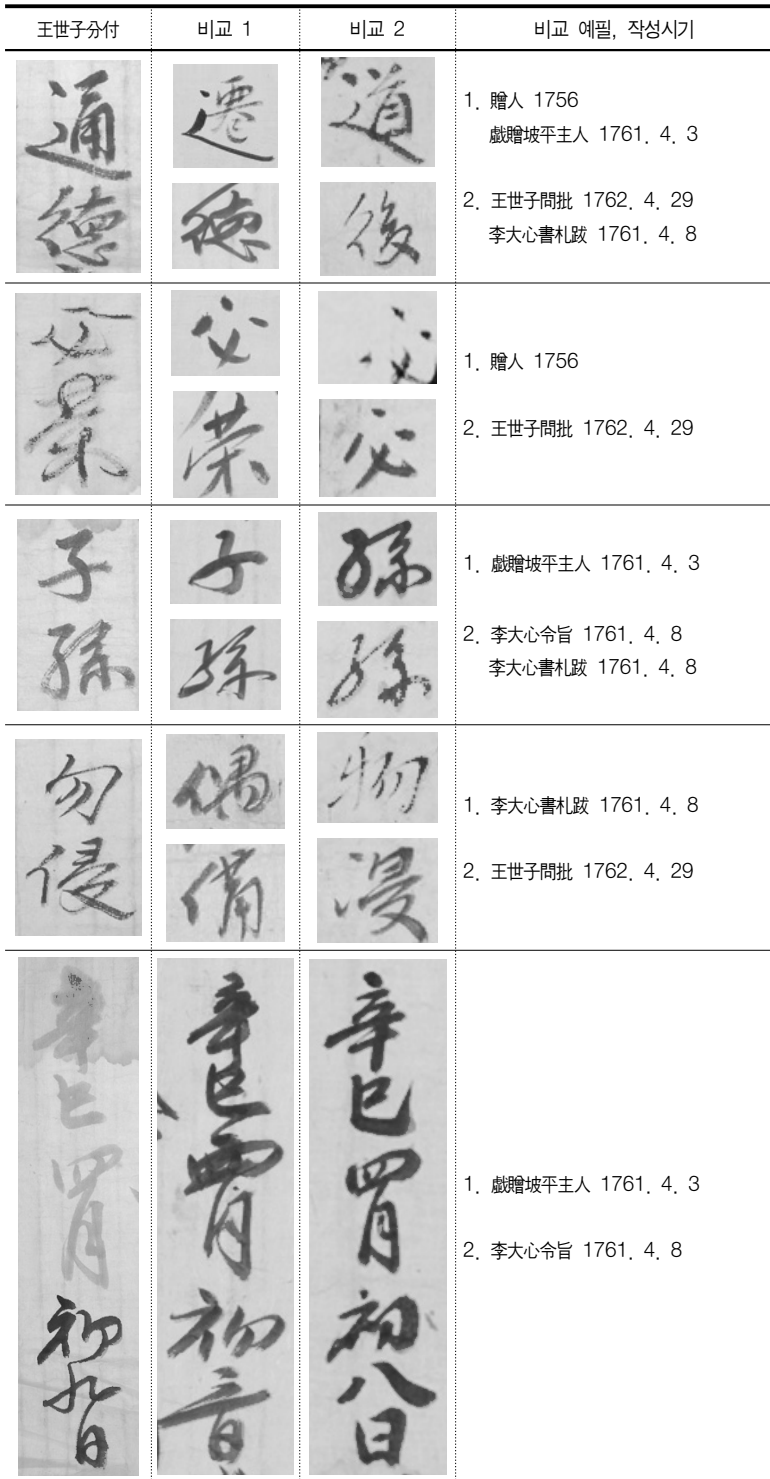 王世子分付 비교 1 비교 2 비교 예필, 작성시기
通 遷 道
德 德 後
1. 贈人 1756
戱贈坡平主人 1761. 4. 3
2. 王世子問批 1762. 4. 29
李大心書札跋 1761. 4. 8
必 必 必
榮 榮 必
1. 贈人 1756
2. 王世子問批 1762. 4. 29
子 子 孫
孫 孫 孫
1. 戱贈坡平主人 1761. 4. 3
2. 李大心令旨 1761. 4. 8
李大心書札跋 1761. 4. 8
勿 偶 物
侵 備 浸
1. 李大心書札跋 1761. 4. 8
2. 王世子問批 1762. 4. 29
辛巳四月初九日
辛巳四月初三日
辛巳四月初八日
1. 戱贈坡平主人 1761. 4. 3
2. 李大心令旨 1761. 4. 8